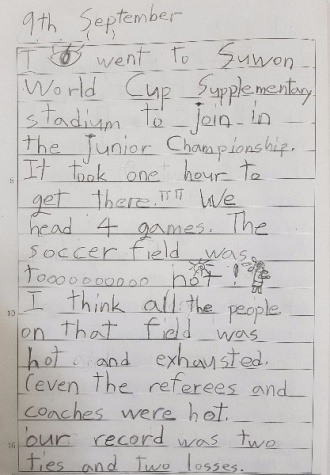 9th September
I went to Suwon
World Cup Supplementary
stadium to join in
the junior Championship.
It took one hour to
get there. ㅠㅠ We
head 4 games. The
soccer field was
toooooooooo hot !
I think all the people
on that field was
hot and exhausted.
(even the referees and
coaches were hot.
our record was two
ties and two losses.